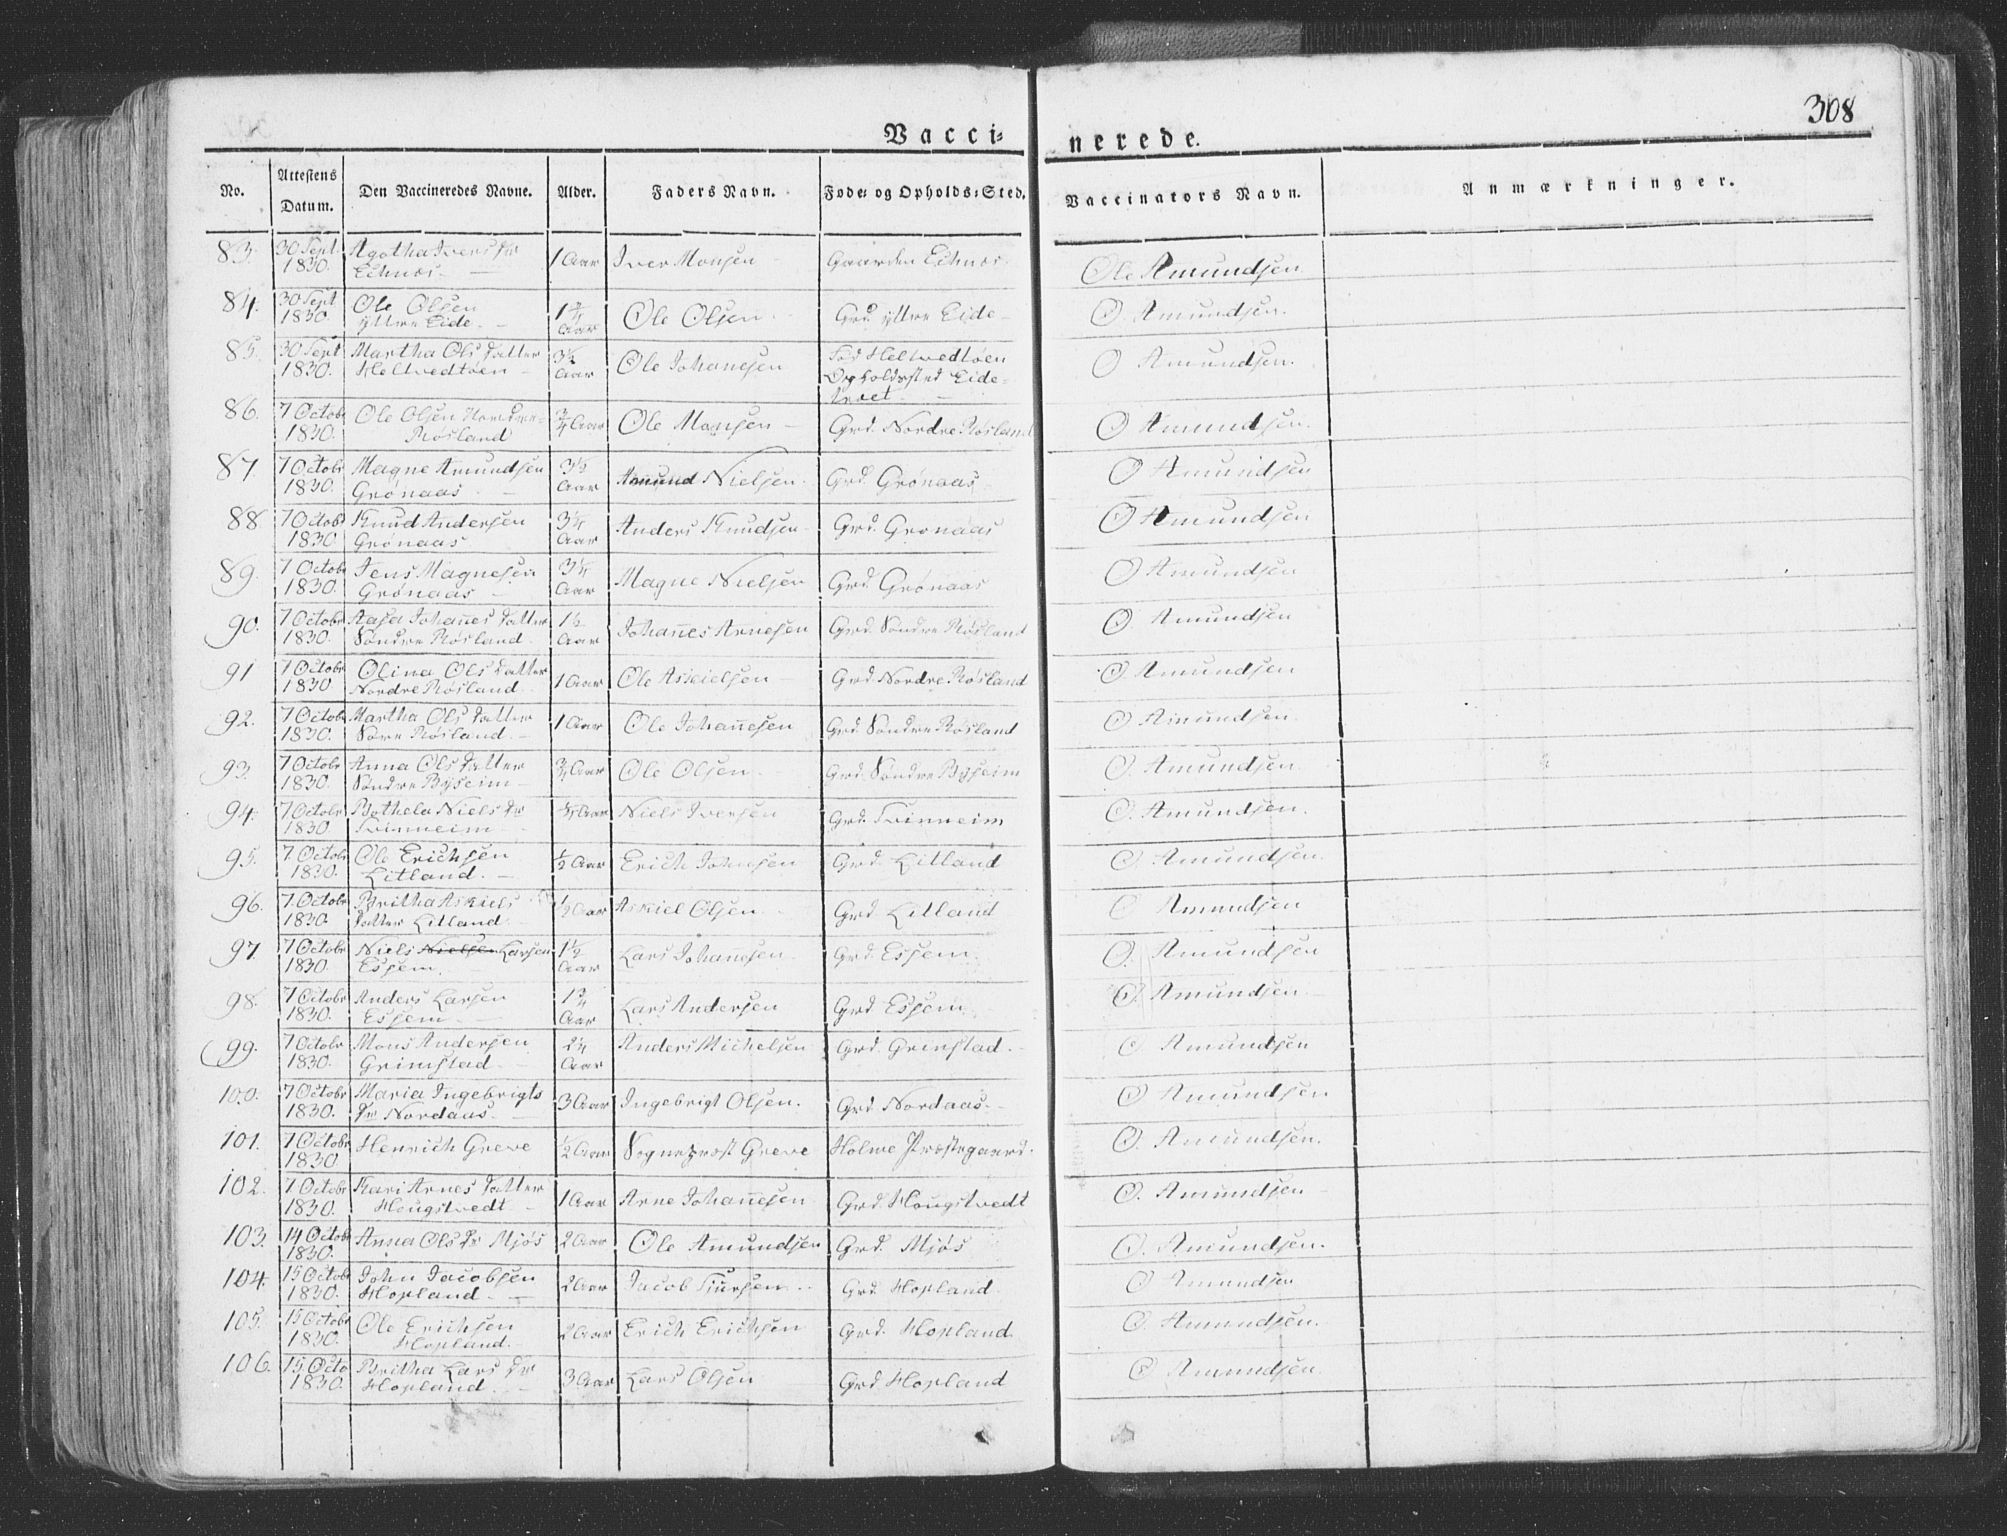 308
Vacci= nerede.
No. Attestens Datum. Den Vaccineredes Navne. Alder. Faders Navn. Føde= og Opholds=Sted. Vaccinators Navn. Anmærkninger.
83. 30 Sept. Agotha Ivers Dr 1 Aar Iver Monsen Gaarden Echnæs Ole Amundsen
1830. Echnæs
84. 30 Sept Ole Olsen 1 3/4 Ole Olsen Grd. yttre Eide O. Amundsen.
1830 yttre Eide. Aar
85. 30 Sept Martha Ols Datter 3 1/2 Ole Johanesen Fød Heltvedtøen O Amundsen.
1830. Heltvedtøen Aar Opholdssted Eide=
86. 7 Octobr Ole Olsen 3/4 Aar Ole Monsen Grd. Nordre Røsland O Amundsen.
1830. Røsland
87. 7 Octobr Magne Amundsen 3 1/2 Amund Nielsen. Grd. Grønaas O Amundsen
1830. Grønaas Aar
88 7 Octobr Knud Andersen 3 1/4 Anders Knudsen Grd. Grønaas O Amundsen
1830 Grønaas Aar
89. 7 Octobr Jens Magnesen 3 1/4 Magne Nielsen Grd. Grønaas O Amundsen
1830. Grønaas Aar
90. 7 Octobr Aasa Johanes Datter 1 1/2 Johanes Arnesen Grd. Søndre Røsland O. Amundsen
1830. Søndre Røsland. Aar
91 7 Octobr Olina Ols Datter 1 Aar Ole Askielsen Grd. Nordre Røsland O Amundsen
1830 Nordre Røsland.
92. 7 Octobr Martha Ols Datter 1 Aar Ole Johanesen Grd. Søndre Røsland O. Amundsen.
1830. Søre Røsland.
93. 7 Octobr Anna Ols Datter 3/4 Aar Ole Olsen Grd. Søndre Byseim O. Amundsen.
1830. Søndre Byseim
94. 7 Octobr Bothela Niels Dr 3/4 Aar Niels Iversen Grd. Tvinneim O. Amundsen.
1830 Tvinneim
95. 7 Octobr Ole Erichsen 1/2 Aar Erich Johnsen Grd. Litland O Amundsen.
1830. Litland.
96. 7 Octobr Britha Askiels 1/2 Aar Askiel Olsen Grd Litland Amundsen
1830 Datter Litland
97. 7 Octobr Niels Nielsen Larsen 1 1/2 Lars Johanesen Grd. Essem. O. Amundsen
1830. Essem. Aar
98. 7 Octobr Anders Larsen 1 3/4 Lars Andersen Grd Essem O. Amundsen
1830. Essem Aar
99. 7 Octobr Mons Andersen 2 1/4 Anders Michelsen Grd. Grimstad. O Amundsen
1830. Grimstad Aar
100. 7 Octobr Maria Ingebrigts 3 Aar Ingebrigt Olsen. Grd. Nordaas. O Amundsen
1830. Dr Nordaas.
101. 7 Octobr Henrich Greve 1/2 Aar Sogneprost Greve Holme Præstegaard. O. Amundsen.
1830.
102. 7 Octobr Kari Arnes Datter 1 Aar Arne Johanesen Grd. Hougstvedt O. Amundsen
1830. Hougstvedt
103. 14 Octobr Anna Ols Dr Mjøs 2 Aar Ole Amundsen Grd. Mjøs O. Amundsen.
1830.
104. 15 Octobr John Jacobsen 2 Aar Jacob Siursen Grd. Hopland. O Amundsen
1830. Hopland.
105. 15 Octobr Ole Erichsen 2 Aar Erich Erichsen Grd. Hopland. O. Amundsen.
1830. Hopland.
106. 15 Octo Britha Lars Dr 3 Aar Lars Olsen Grd Hopland O Amundsen
1830. Hopland.